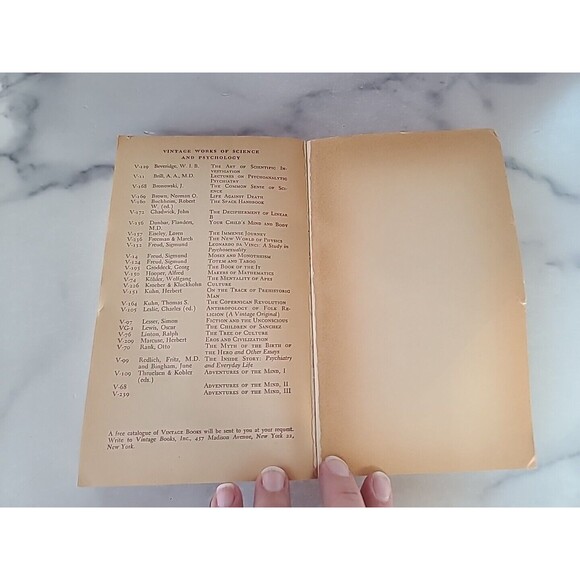 VINTAGE WORKS OF SCIENCE
AND PSYCHOLOGY
V-129 Beveridge, W. I. B. THE ART OF SCIENTIFIC IN-
VESTIGATION
V-11 Brill, A. A., M.D. LECTURES ON PSYCHOANALYTIC
PSYCHIATRY
V-168 Bronowski, J. THE COMMON SENSE OF SCI-
ENCE
V-169 Brown, Norman O. LIFE AGAINST DEATH
V-160 Buchheim, Robert THE SPACE HANDBOOK
W. (ed.)
V-172 Chadwick, John THE DECIPHERMENT OF LINEAR
B
V-156 Dunbar, Flanders, YOUR CHILD'S MIND AND BODY
M.D.
V-157 Eiseley, Loren THE IMMENSE JOURNEY
V-236 Freeman & March THE NEW WORLD OF PHYSICS
V-132 Freud, Sigmund LEONARDO DA VINCI: A Study in
Psychosexuality
V-14 Freud, Sigmund MOSES AND MONOTHEISM
V-124 Freud, Sigmund TOTEM AND TABOO
V-195 Groddeck, Georg THE BOOK OF THE IT
V-150 Hooper, Alfred MAKERS OF MATHEMATICS
V-74 Köhler, Wolfgang THE MENTALITY OF APES
V-226 Kroeber & Kluckhohn CULTURE
V-151 Kuhn, Herbert ON THE TRACK OF PREHISTORIC
MAN
V-164 Kuhn, Thomas S. THE COPERNICAN REVOLUTION
V-105 Leslie, Charles (ed.) ANTHROPOLOGY OF FOLK RE-
LIGION (A Vintage Original)
V-97 Lesser, Simon FICTION AND THE UNCONSCIOUS
VG-1 Lewis, Oscar THE CHILDREN OF SANCHEZ
V-76 Linton, Ralph THE TREE OF CULTURE
V-209 Marcuse, Herbert EROS AND CIVILIZATION
V-70 Rank, Otto THE MYTH OF THE BIRTH OF
THE HERO and Other Essays
V-99 Redlich, Fritz, M.D. THE INSIDE STORY: Psychiatry
and Bingham, June and Everyday Life
V-109 Thruelsen & Kobler ADVENTURES OF THE MIND, I
(eds.)
V-68 ADVENTURES OF THE MIND, II
V-239 ADVENTURES OF THE MIND, III
A free catalogue of VINTAGE BOOKS will be sent to you at your request.
Write to Vintage Books, Inc., 457 Madison Avenue, New York 22,
New York.